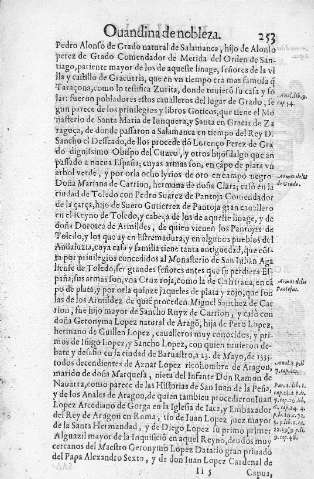 Ouandina de nobleza. 253
Pedro Alonso de Grado natural de Salamanca, hijo de Alonso
perez de Grado Comendador de Merida del Orden de San-
tiago, pariente mayor de los de aqueste linage, señores de la vi
lla y castillo de Gracurris, que en vn tiempo era mas famosa q
Taraçona, como lo testifica Zurita, donde tuuierõ su casa y so
lar: fueron pobladores estos caualleros del lugar de Grado, se
gun parece de los priuilegios y libros Goticos, que tiene el Mo
nesterio de Santa Maria de Iunquera, y Santa en Gracia de Za
ragoça, de donde passaron a Salamanca en tiempo del Rey D.
Sancho el Desseado, de llos procede dõ Lorenço Perez de Gra
do dignissimo Obispo del Cuzco, y otros hijosdalgo que an
passado a nueua España, cuyas armas son, en cãpo de plata vn
arbol verde, y por orla ocho lyrios de oro en campo negro
Doña Mariana de Carrion, hermana de doña Clara, casò en la
ciudad de Toledo con Pedro Suarez de Pantoja Comendador
de la çarça, hijo de Suero Gutierrez de Pantoja gran cauallero
en el Reyno de Toledo, y cabeça de los de aqueste linage, y de
doña Dorotea de Armildes, de quien vienen los Pantojas de
Toledo, y los que ay en Estremadura, y en algunos pueblos del
Andaluzia, cuya casa y familia tiene tanta antiguedad, que cõs
ta por priuilegios concedidos al Monasterio de San Iulian Aga
liense de Toledo, ser grandes señores antes que se perdiera Es
paña, sus armas son, vna Cruz roja, como la de Calatraua, en cã
po de plata, y por orla quinze jaqueles de plata y rojo, que son
las de los Armildez de que procede. Miguel Sanchez de Car
rion, fue hijo mayor de Sancho Ruyz de Carrion, y casò con
doña Geronyma Lopez natural de Aragõ, hija de Pero Lopez,
hermano de Guillen Lopez, caualleros muy conocidos, y pri-
mos de Iñigo Lopez, y Sancho Lopez, con quien tuuieron de-
bate y desafio en la ciudad de Baruastro, a 23. de Mayo, de 1535.
todos decendientes de Aznar Lopez ricohombre de Aragon,
marido de doña Marquesa, nieta del Infante Don Ramon de
Nauarra, como parece de las Historias de San Iuan de la Peña,
y de los Anales de Aragon, de quien tambien procedieron Iuan
Lopez Arcediano de Gorga en la Iglesia de Iaca, y Embaxador
del Rey de Aragon en Roma, tio de Iuan Lopez juez mayor
de la Santa Hermandad, y de Diego Lopez su primo primer
Alguazil mayor de la Inquisiciõ en aquel Reyno, deudos muy
cercanos del Maestro Geronymo Lopez Datario gran priuado
del Papa Alexandro Sexto, y de don Iuan Lopez Cardenal de
Ii 5 Capua,